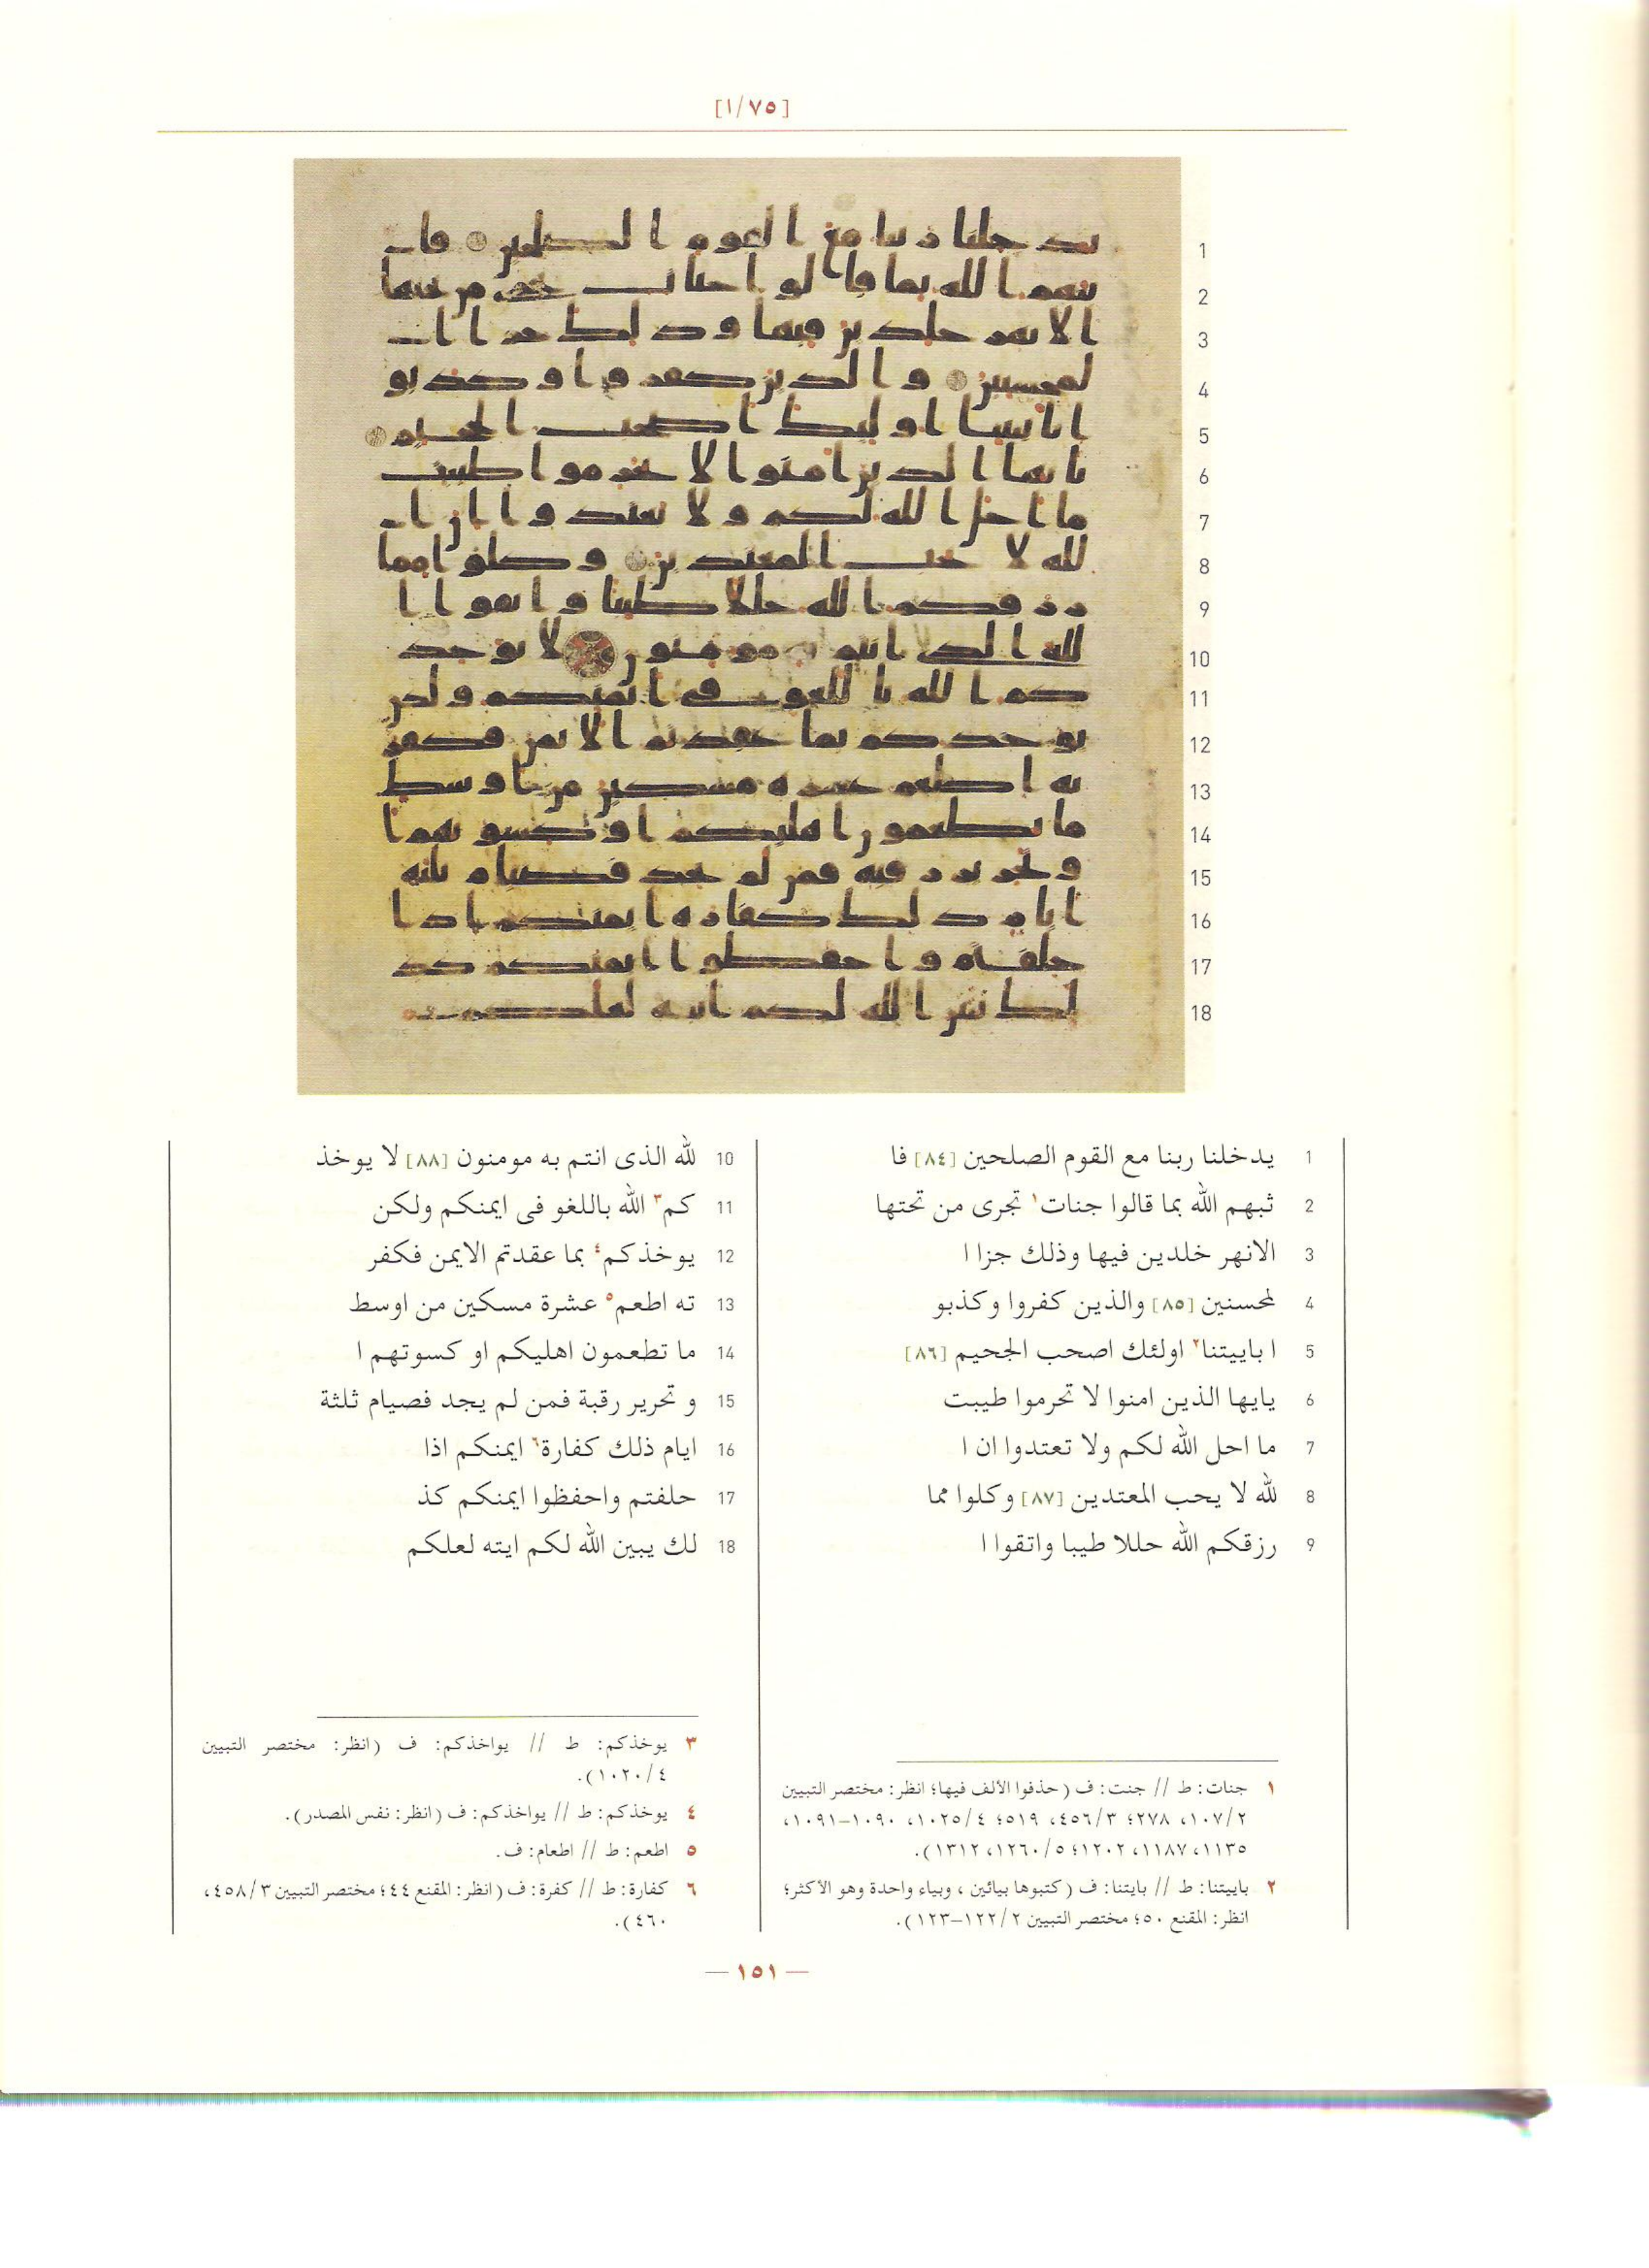 [٧٥/١]
1 يدخلنا ربنا مع القوم الصلحين [٨٤] فا
2 ثبهم الله بما قالوا جنات١ تجرى من تحتها
3 الانهر خلدين فيها وذلك جزا ا
4 لمحسنين [٨٥] والذين كفروا وكذبو
5 ا باييتنا٢ اولئك اصحب الجحيم [٨٦]
6 يايها الذين امنوا لا تحرموا طيبت
7 ما احل الله لكم ولا تعتدوا ان ا
8 لله لا يحب المعتدين [٨٧] وكلوا مما
9 رزقكم الله حللا طيبا واتقوا ا
10 لله الذى انتم به مومنون [٨٨] لا يوخذ
11 كم٣ الله باللغو فى ايمنكم ولكن
12 يوخذكم٤ بما عقدتم الايمن فكفر
13 ته اطعم٥ عشرة مسكين من اوسط
14 ما تطعمون اهليكم او كسوتهم ا
15 و تحرير رقبة فمن لم يجد فصيام ثلثة
16 ايام ذلك كفارة٦ ايمنكم اذا
17 حلفتم واحفظوا ايمنكم كذ
18 لك يبين الله لكم ايته لعلكم
١ جنات: ط // جنت: ف (حذفوا الألف فيها؛ انظر: مختصر التبيين
١٠٧/٢، ٢٧٨؛ ٤٥٦/٣، ٥١٩؛ ١٠٢٥/٤، ١٠٩٠–١٠٩١،
١١٣٥، ١١٨٧، ١٢٠٢؛ ١٢٦٠/٥، ١٣١٢).
٢ باييتنا: ط // بايتنا: ف (كتبوها بيائين، وبياء واحدة وهو الأكثر؛
انظر: المقنع ٥٠؛ مختصر التبيين ١٢٢/٢–١٢٣).
٣ يوخذكم: ط // يواخذكم: ف (انظر: مختصر التبيين
١٠٢٠/٤).
٤ يوخذكم: ط // يواخذكم: ف (انظر: نفس المصدر).
٥ اطعم: ط // اطعام: ف.
٦ كفارة: ط // كفرة: ف (انظر: المقنع ٤٤؛ مختصر التبيين ٤٥٨/٣،
٤٦٠).
— ١٥١ —